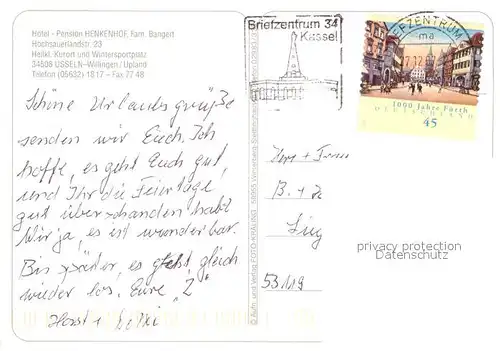 Hotel - Pension HENKENHOF, Fam. Bangert
Hochsauerlandstr. 23
Heilkl. Kurort und Wintersportplatz
34508 USSELN-Willingen / Upland
Telefon (05632) 1817 - Fax 77 48
Schöne Urlaubsgrüße
senden wir Euch. Ich
hoffe, es geht Euch gut,
und Ihr die Feiertage
gut überstanden habt
Wir ja, es ist wunderbar.
Bis später, es geht gleich
wieder los. Eure "2"
Horst +
Briefzentrum 34
Kassel
BRIEFZENTRUM
ma
12
1000 Jahre Fürth
DEUTSCHLAND
45
Herrn +
B. +
53119
privacy protection
Datenschutz